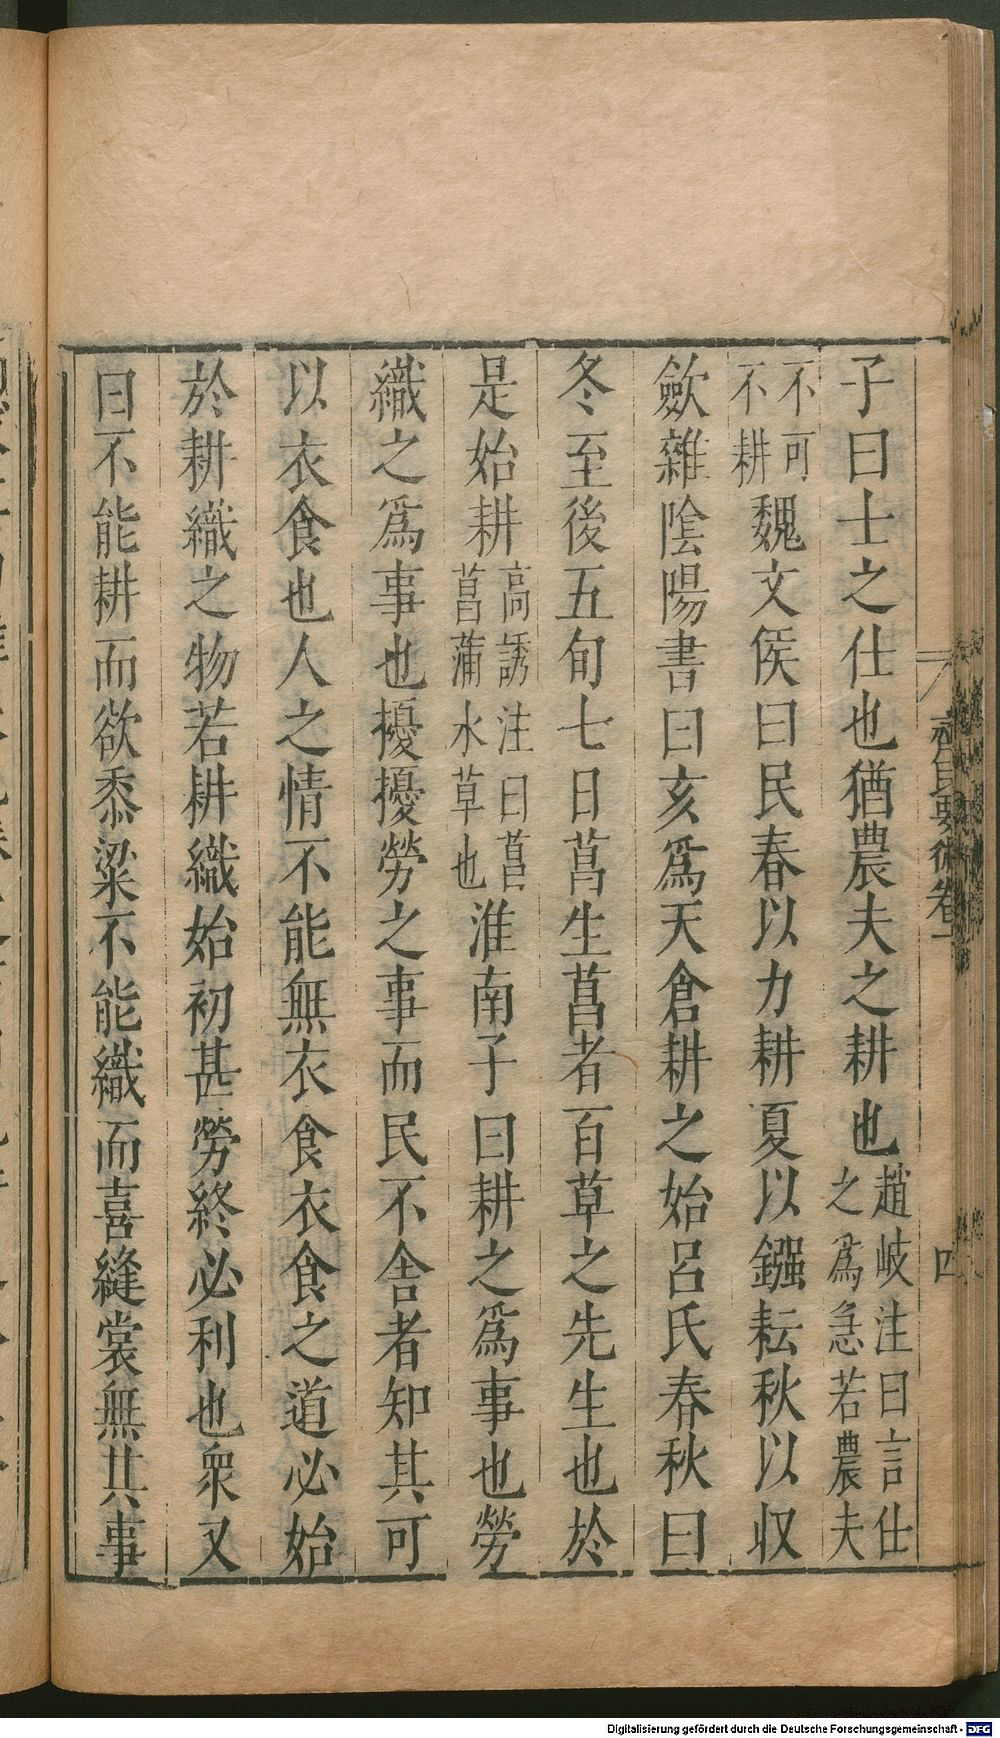 子曰士之仕也猶農夫之耕也趙岐注曰言仕之爲急若農夫
不可不耕魏文侯曰民春以力耕夏以鏹耘秋以収
歛雜隂陽書曰亥爲天倉耕之始呂氏春秋曰
冬至後五旬七日菖生菖者百草之先生也於
是始耕高誘注曰菖菖蒲水草也淮南子曰耕之爲事也勞
織之爲事也擾擾勞之事而民不舍者知其可
以衣食也人之情不能無衣食衣食之道必始
於耕織之物若耕織始初甚勞終必利也衆又
曰不能耕而欲黍粱不能織而喜縫裳無其事
齊民要術卷一
四
Digitalisierung gefördert durch die Deutsche Forschungsgemeinschaft - DFG